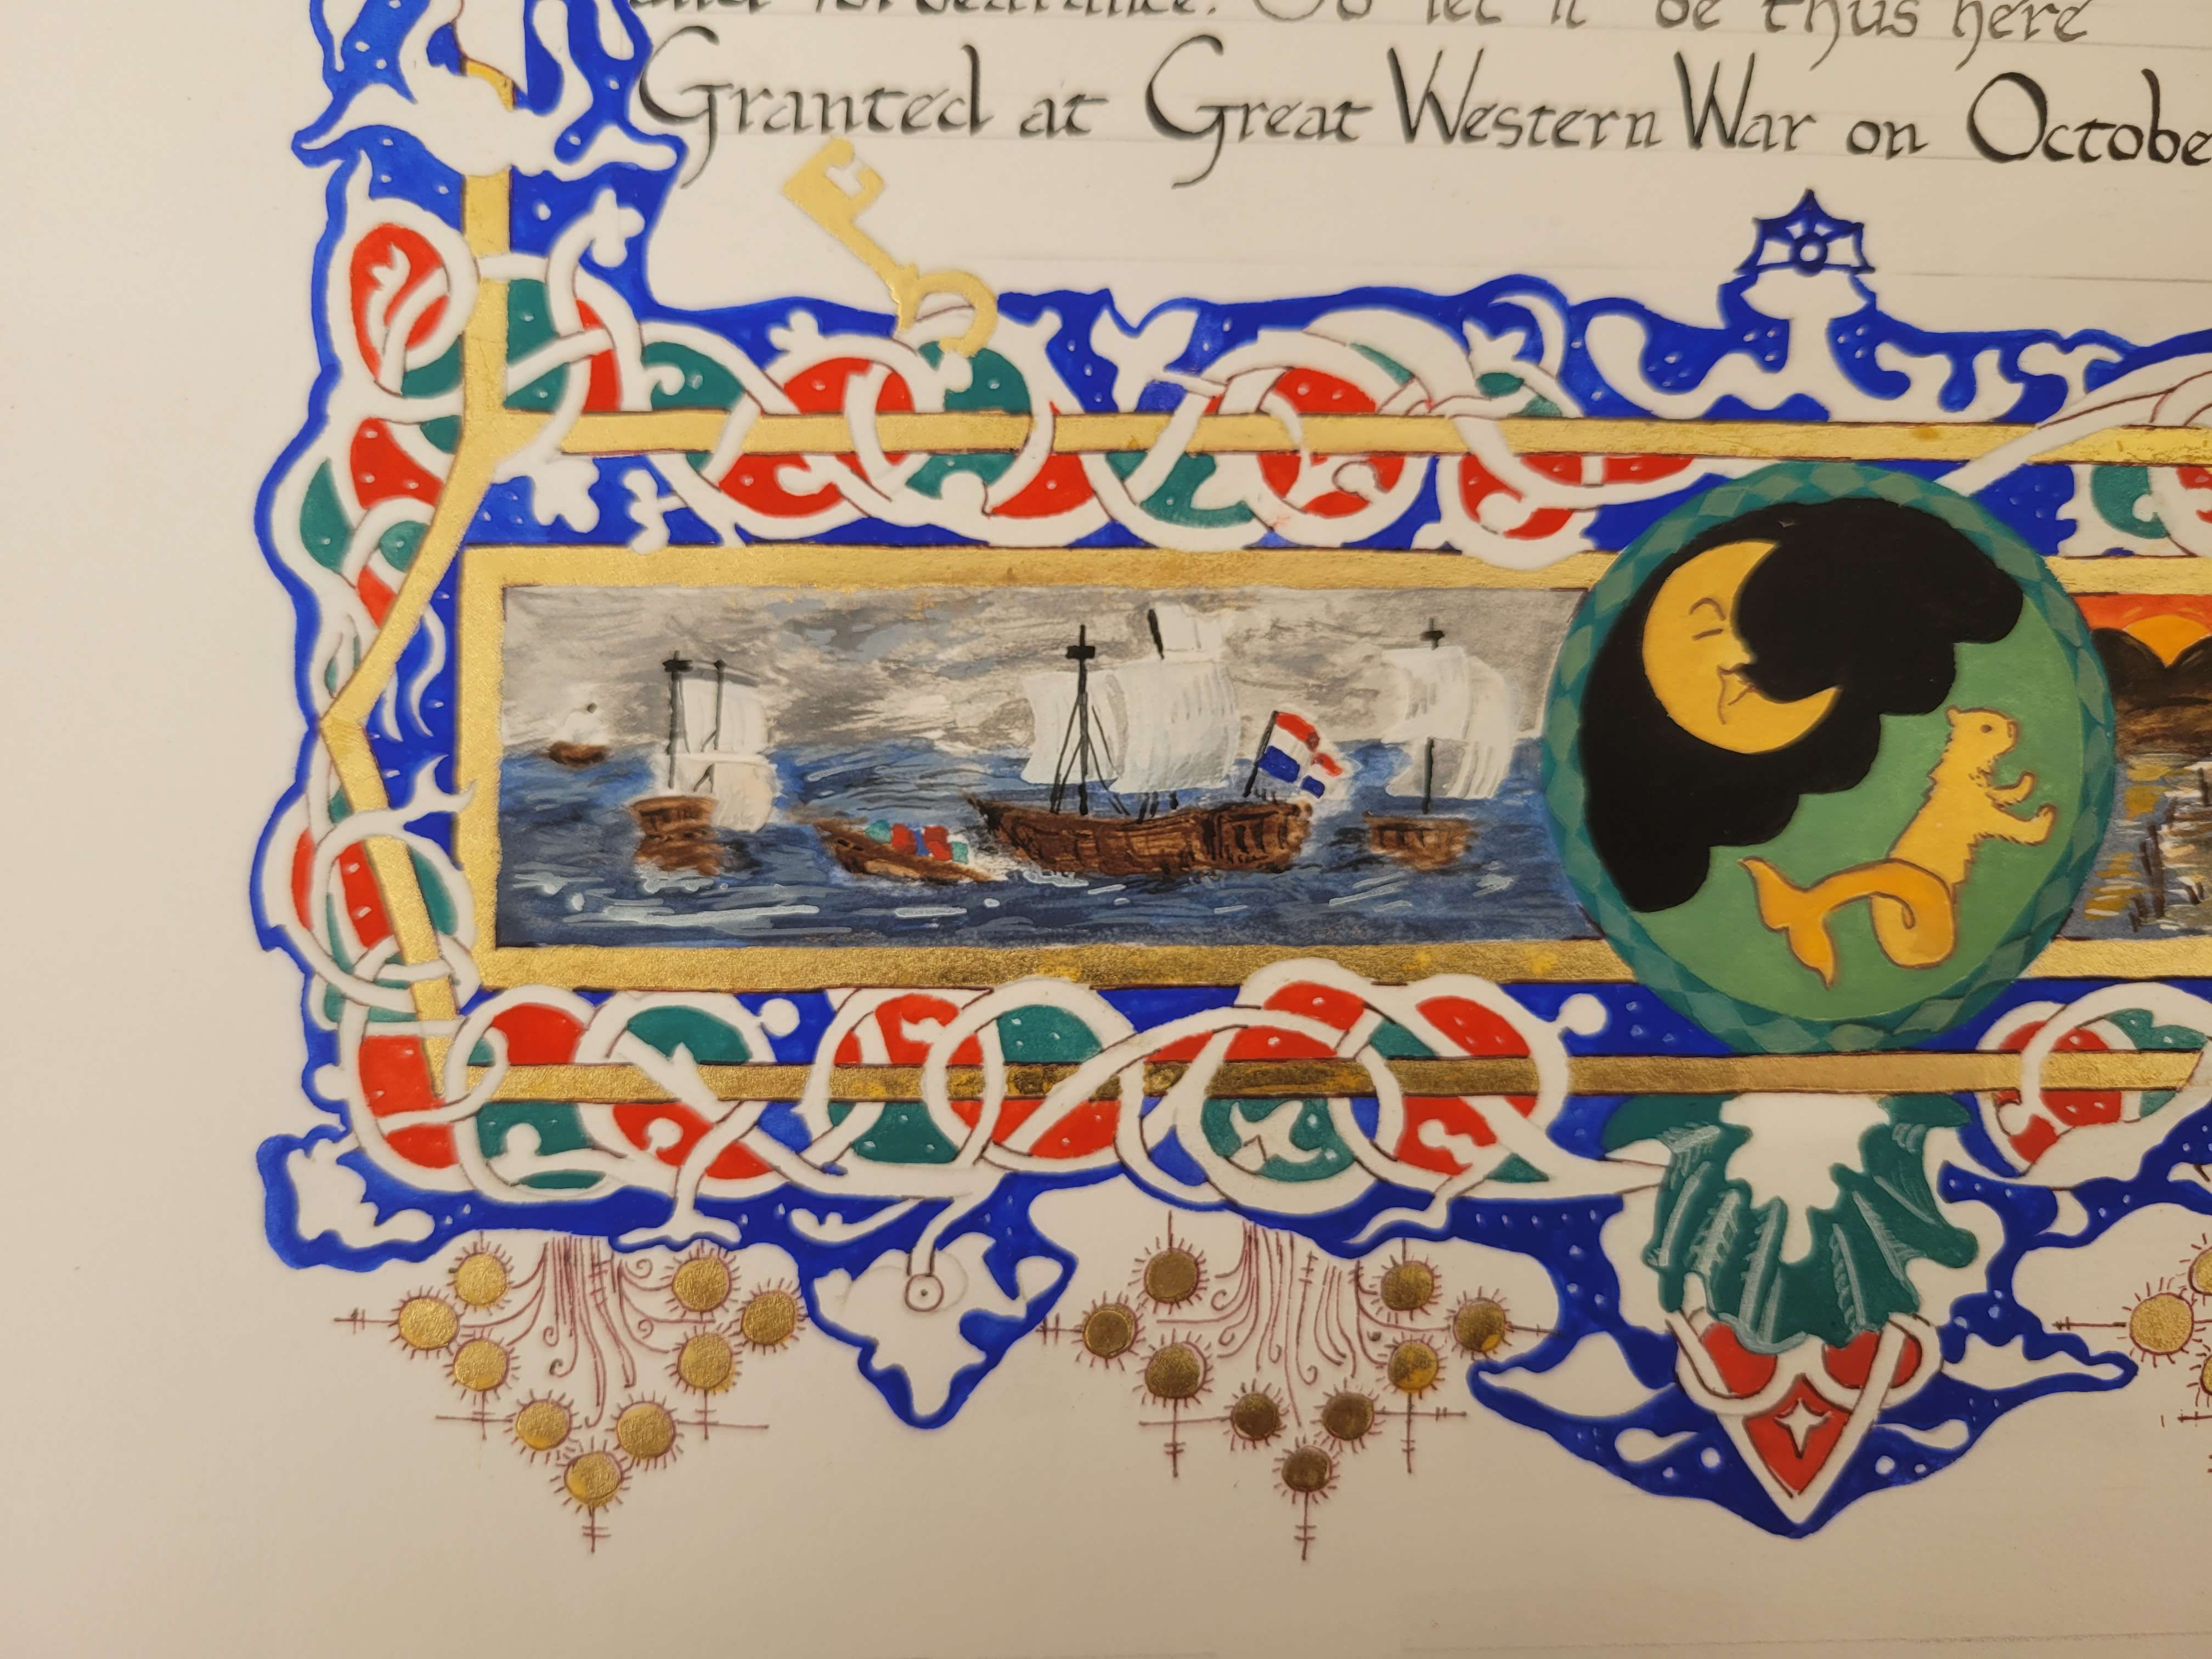 and forbearance. So let it be thus here
Granted at Great Western War on Octobe